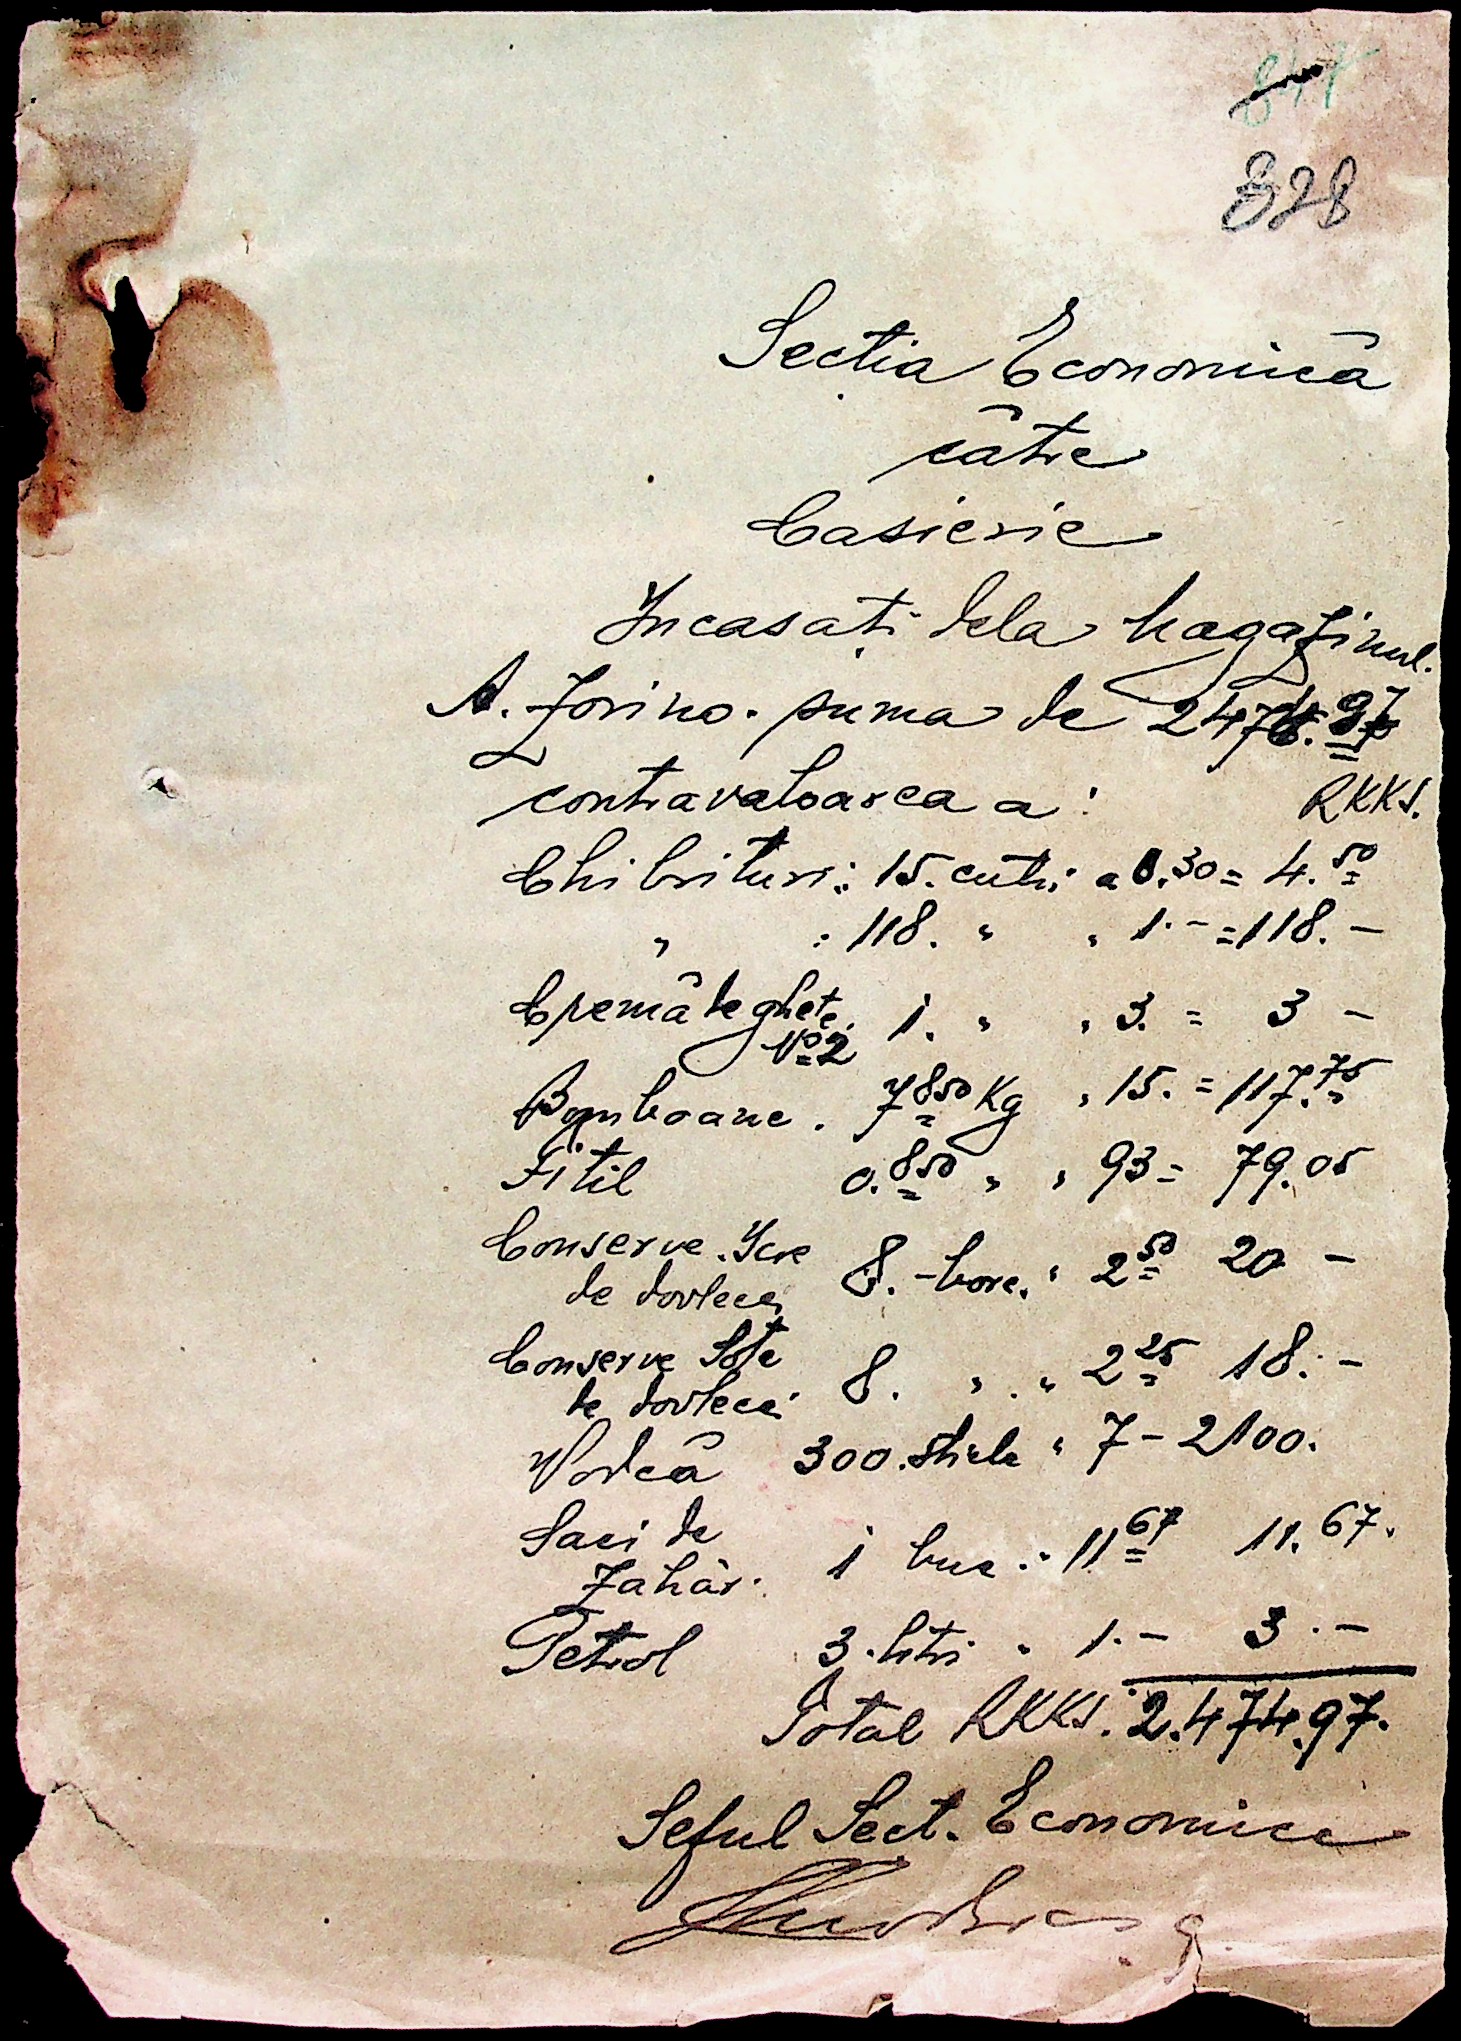 847
828
Sectia Economică
cătrе
Casierie
Incasați dela Magazinul.
A. Zorino. suma de 2474.97
contravaloarea a: RKKS.
Chibrituri: 15. cutii a 0.30 = 4.50
" : 118. " " 1.- = 118.-
Cremă de ghete 1. " " 3. = 3 -
No 2
Bomboane. 7850 Kg " 15. = 117.75
Fitil 0.850 " " 93 = 79.05
Conserve Icre 8.- borc. " 2 50 20 -
de dovleci
Conserve Sote 8. " . " 2 25 18.-
de dovleci
Vodcă 300. sticle " 7 - 2100.
Saci de
Zahăr. 1 buc. " 11 67 11.67.
Petrol 3. litri " 1.- 3.-
Total RKKS. 2.474.97.
Seful Sect. Economice